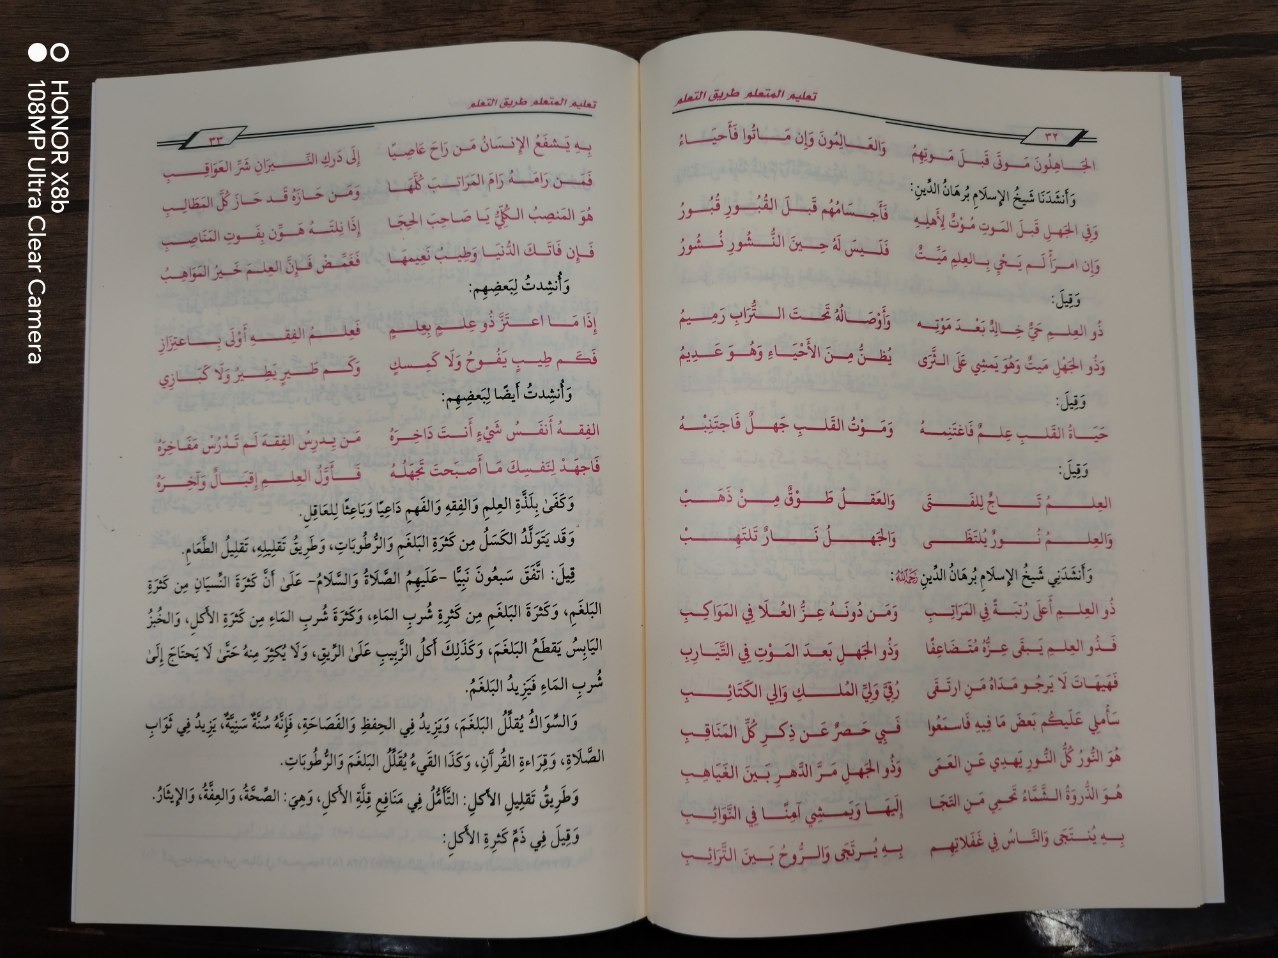 تعليم المتعلم طريق التعلم
٣٢
الجَاهِلُونَ مَوتَى قَبلَ مَوتِهِمُ وَالعَالِمُونَ وَإِن مَاتُوا فَأَحيَاءُ
وَأَنشَدَنَا شَيخُ الإِسلَامِ بُرهَانُ الدِّينِ:
وَفِي الجَهلِ قَبلَ المَوتِ مَوْتٌ لِأَهلِهِ فَأَجسَامُهُم قَبلَ القُبُورِ قُبُورُ
وَإِن امرَأً لَم يَحْيَ بِالعِلمِ مَيِّتٌ فَلَيسَ لَهُ حِينَ النُّشُورِ نُشُورُ
وَقِيلَ:
ذُو العِلمِ حَيٌّ خَالِدٌ بَعْدَ مَوْتِهِ وَأَوْصَالُهُ تَحْتَ التُّرَابِ رَمِيمُ
وَذُو الجَهْلِ مَيتٌ وَهْوَ يَمشِي عَلَى الثَّرَى يُظَنُّ مِنَ الأَحْيَاءِ وَهْوَ عَدِيمُ
وَقِيلَ:
حَيَاةُ القَلبِ عِلمٌ فَاغتَنِمهُ وَمَوْتُ القَلبِ جَهلٌ فَاجتَنِبْهُ
وَقِيلَ:
العِلمُ تَاجٌ لِلفَتَى وَالعَقلُ طَوْقٌ مِنْ ذَهَبْ
وَالعِلمُ نُورٌ يُلتَظَى وَالجَهلُ نَارٌ تَلتَهِبْ
وَأَنشَدَنِي شَيخُ الإِسلَامِ بُرهَانُ الدِّينِ رَحِمَهُ اللهُ:
ذُو العِلمِ أَعلَى رُتبَةً فِي المَرَاتِبِ وَمَن دُونَهُ عِزُّ العُلَا فِي المَوَاكِبِ
فَذُو العِلمِ يَبقَى عِزُّهُ مُتَضَاعِفًا وَذُو الجَهلِ بَعدَ المَوْتِ فِي التَّيَارِبِ
فَهَيهَاتَ لَا يَرجُو مَدَاهُ مَنِ ارتَقَى رُقِيَّ وَلِيِّ المُلكِ وَالِي الكَتَائِبِ
سَأُملِي عَلَيكُم بَعضَ مَا فِيهِ فَاسمَعُوا فَبِي حَصرٌ عَن ذِكرِ كُلِّ المَنَاقِبِ
هُوَ النُّورُ كُلُّ النُّورِ يَهدِي عَنِ العَمَى وَذُو الجَهلِ مَرَّ الدَّهرِ بَينَ الغَيَاهِبِ
هُوَ الذُّروَةُ الشَّمَّاءُ تَحمِي مَنِ التَجَا إِلَيهَا وَيَمشِي آمِنًا فِي النَّوَائِبِ
بِهِ يُنتَجَى وَالنَّاسُ فِي غَفَلَاتِهِم بِهِ يُرتَجَى وَالرُّوحُ بَينَ التَّرَائِبِ
تعليم المتعلم طريق التعلم
٣٣
بِهِ يَشفَعُ الإِنسَانُ مَن رَاحَ عَاصِيًا إِلَى دَركِ النِّيرَانِ شَرِّ العَوَاقِبِ
فَمَن رَامَهُ رَامَ المَرَاتِبَ كُلَّهَا وَمَن حَازَهُ قَد حَازَ كُلَّ المَطَالِبِ
هُوَ المَنصِبُ الكُلِّيُّ يَا صَاحِبَ الحِجَا إِذَا نِلتَهُ هَوِّن بِفَوتِ المَنَاصِبِ
فَإِن فَاتَكَ الدُّنيَا وَطِيبُ نَعِيمِهَا فَغَمِّض فَإِنَّ العِلمَ خَيرُ المَوَاهِبِ
وَأُنشِدتُ لِبَعضِهِم:
إِذَا مَا اعتَزَّ ذُو عِلمٍ بِعِلمٍ فَعِلمُ الفِقهِ أَوْلَى بِاعتِزَازِ
فَكَم طِيبٍ يَفُوحُ وَلَا كَمِسكٍ وَكَم طَيرٍ يَطِيرُ وَلَا كَبَازِي
وَأُنشِدتُ أَيضًا لِبَعضِهِم:
الفِقهُ أَنفَسُ شَيْءٍ أَنتَ ذَاخِرُهُ مَن يَدرِسُ الفِقهَ لَم تَدْرُسْ مَفَاخِرُهُ
فَاجهَدْ لِنَفسِكَ مَا أَصبَحتَ تَجهَلُهُ فَأَوَّلُ العِلمِ إِقبَالٌ وَآخِرُهُ
وَكَفَى بِلَذَّةِ العِلمِ وَالفِقهِ وَالفَهمِ دَاعِيًا وَبَاعِثًا لِلعَاقِلِ.
وَقَد يَتَوَلَّدُ الكَسَلُ مِن كَثرَةِ البَلغَمِ وَالرُّطُوبَاتِ، وَطَرِيقُ تَقلِيلِهِ، تَقلِيلُ الطَّعَامِ.
قِيلَ: اتَّفَقَ سَبعُونَ نَبِيًّا -عَلَيهِمُ الصَّلَاةُ وَالسَّلَامُ- عَلَى أَنَّ كَثرَةَ النِّسيَانِ مِن كَثرَةِ
البَلغَمِ، وَكَثرَةَ البَلغَمِ مِن كَثرَةِ شُربِ المَاءِ، وَكَثرَةَ شُربِ المَاءِ مِن كَثرَةِ الأَكلِ، وَالخُبزُ
اليَابِسُ يَقطَعُ البَلغَمَ، وَكَذَلِكَ أَكلُ الزَّبِيبِ عَلَى الرِّيقِ، وَلَا يُكثِرَ مِنهُ حَتَّى لَا يَحتَاجَ إِلَى
شُربِ المَاءِ فَيَزِيدُ البَلغَمُ.
وَالسِّوَاكُ يُقَلِّلُ البَلغَمَ، وَيَزِيدُ فِي الحِفظِ وَالفَصَاحَةِ، فَإِنَّهُ سُنَّةٌ سَنِيَّةٌ، يَزِيدُ فِي ثَوَابِ
الصَّلَاةِ، وَقِرَاءَةِ القُرآنِ، وَكَذَا القَيءُ يُقَلِّلُ البَلغَمَ وَالرُّطُوبَاتِ.
وَطَرِيقُ تَقلِيلِ الأَكلِ: التَّأَمُّلُ فِي مَنَافِعِ قِلَّةِ الأَكلِ، وَهِيَ: الصِّحَّةُ، وَالعِفَّةُ، وَالإِيثَارُ.
وَقِيلَ فِي ذَمِّ كَثرَةِ الأَكلِ:
HONOR X8b
108MP Ultra Clear Camera